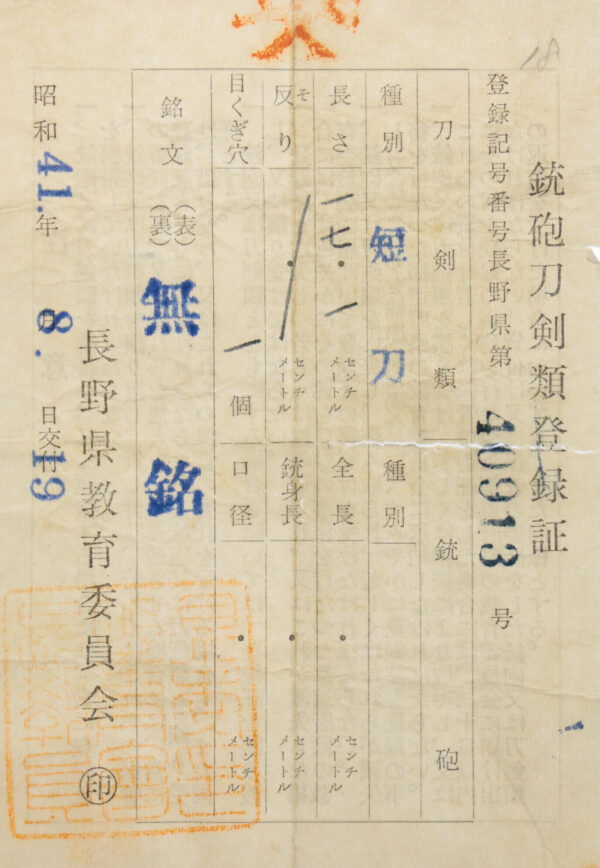 銃砲刀剣類登録証
登録記号番号長野県第40913号
刀剣類
銃砲
種別
短刀
種別
長さ
一七・一
センチメートル
全長
・
センチメートル
反り
そ
・
センチメートル
銃身長
・
センチメートル
目くぎ穴
一
個
口径
・
センチメートル
銘文
(表)
(裏)
無銘
長野県教育委員会
印
昭和41.年8.月19日交付
18